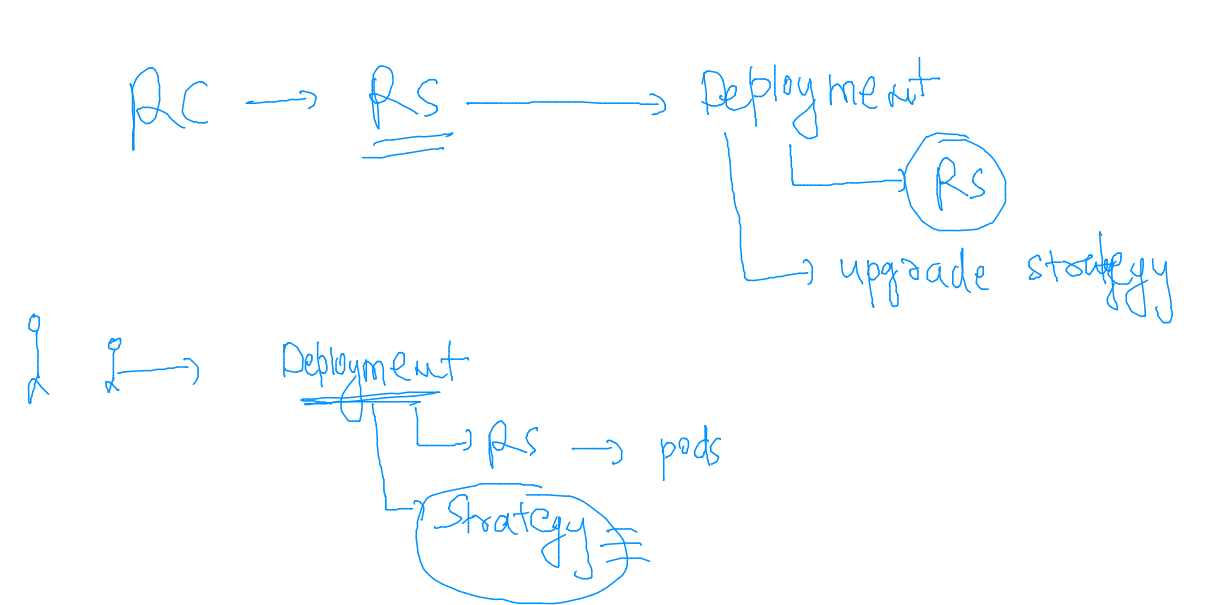 RC → RS → Deployment
RS
upgrade strategy
Deployment
RS → pods
Strategy